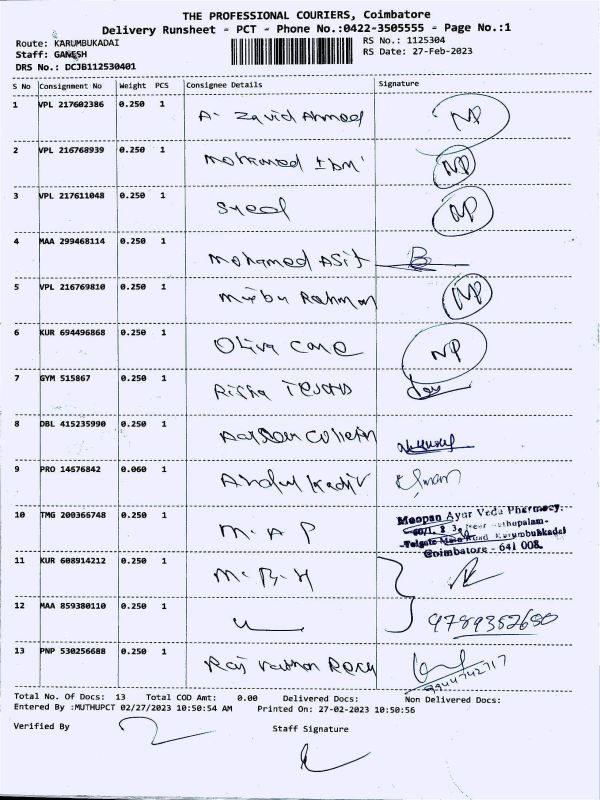 THE PROFESSIONAL COURIERS, Coimbatore
Delivery Runsheet - PCT - Phone No.:0422-3505555 - Page No.:1
Route: KARUMBUKADAI RS No.: 1125304
Staff: GANESH RS Date: 27-Feb-2023
DRS No.: DCJB112530401
S No Consignment No Weight PCS Consignee Details Signature
1 VPL 217602386 0.250 1 A. Zavid Ahmed NP
2 VPL 216768939 0.250 1 Mohamed NP
3 VPL 217611048 0.250 1 Syed NP
4 MAA 299468114 0.250 1 Mohamed Asif
5 VPL 216769810 0.250 1 Rahman NP
6 KUR 694496868 0.250 1 Oliva Care NP
7 GYM 515867 0.250 1
8 DBL 415235990 0.250 1
9 PRO 14676842 0.060 1 Abdul Kadir
10 TMG 200366748 0.250 1 M.A.P Meopan Ayur Veda Pharmacy.
Coimbatore - 641 008.
11 KUR 608914212 0.250 1 M.B.H
12 MAA 859380110 0.250 1 9789352680
13 PNP 530256688 0.250 1 9944742717
Total No. Of Docs: 13 Total COD Amt: 0.00 Delivered Docs: Non Delivered Docs:
Entered By :MUTHUPCT 02/27/2023 10:50:54 AM Printed On: 27-02-2023 10:50:56
Verified By Staff Signature